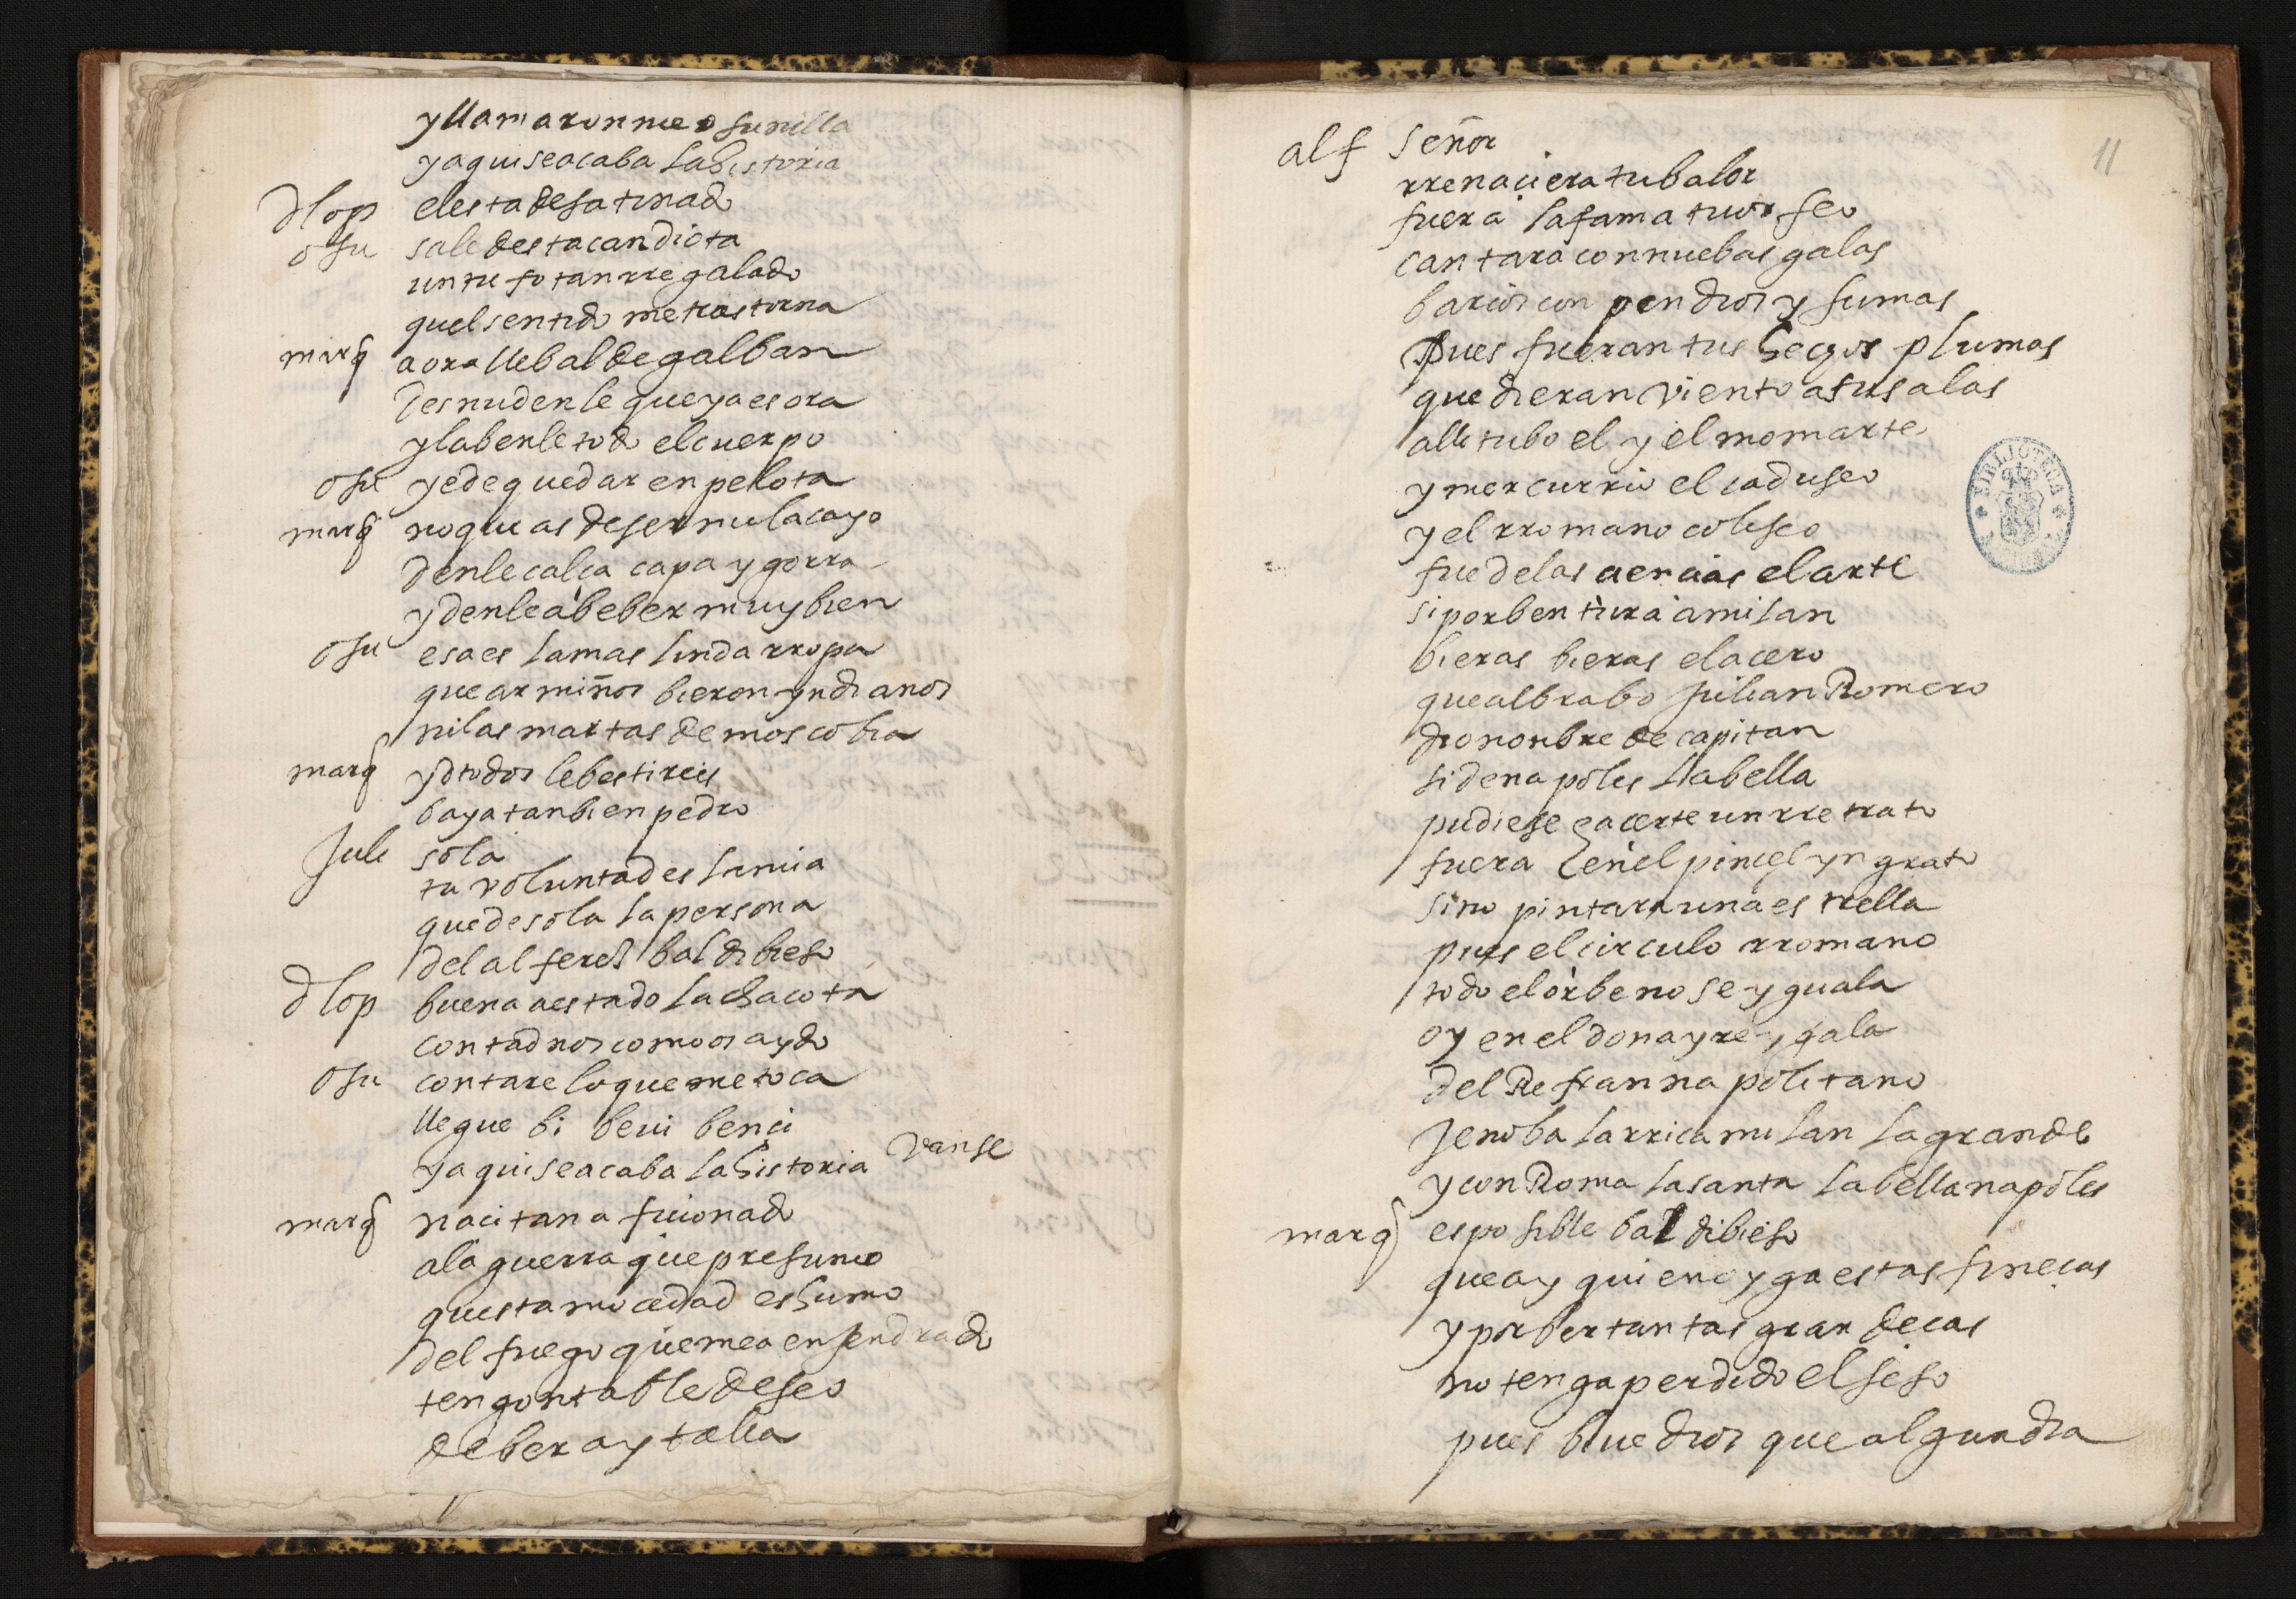 y llamaronme osunilla
y aqui se acaba la historia
dlop el esta desatinado
osu sale desta candiota
un tufo tan rregalado
quel sentido me trastorna
marq aora lleba al de galban
desnudenle que ya es ora
y labenle todo el cuerpo
osu y e de quedar en pelota
marq no que as de ser mi lacayo
denle calça capa y gorra
y denle a beber muy bien
osu esa es la mas linda rropa
que armiños bieron yndianos
ni las martas de moscobia
marq y dtodos le bestireis
baya tanbien pedro
Juli sola
tu voluntad es la mia
quede sola la persona
del alferes baldibieso
dlop buena a estado la chacota
contadnos como os a ydo
osu contare lo que me toca
llegue bi bevi benci
y aqui se acaba la historia vanse
marq naci tan aficionado
a la guerra que presumo
questa mocedad es humo
del fuego que me a enjendrado
tengo notable deseo
de ber a ytalia
11
alf Señor
rrenaciera tu balor
fuera la fama tu orfeo
cantara con nuebas galas
barios conpendios y sumas
pues fueran tus hechos plumas
que dieran viento a sus alas
alli tubo el y el mo marte
y mercurrio el caduseo
y el rromano coliseo
fue de las ciencias el arte
si por bentura a milan
bieras bieras el acero
que al brabo Julian Romero
dio nonbre de capitan
si de napoles la bella
pudiese hacerte un rretrato
fuera en el pincel yngrato
si no pintara una estrella
pues el circulo rromano
todo el orbe no se yguala
oy en el donayre y gala
del Refran napolitano
Jenoba la rrica milan la grande
y con Roma la santa la bella napoles
marq es posible baldibieso
que ay quien oyga estas fineças
y por ber tantas grandeças
no tenga perdido el seso
pues bibe dios que algun dia
BIBLIOTECA